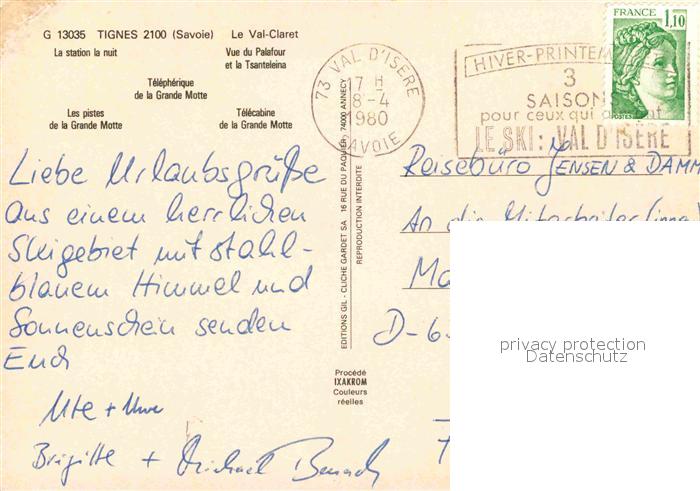 G 13035 TIGNES 2100 (Savoie) Le Val-Claret
La station la nuit
Vue du Palafour
et la Tsanteleina
Téléphérique
de la Grande Motte
Les pistes
de la Grande Motte
Télécabine
de la Grande Motte
Liebe Urlaubsgrüße
aus einem herrlichen
Skigebiet mit stahl-
blauem Himmel und
Sonnenschein senden
Euch
Ute + Uwe
Brigitte + Michael
EDITIONS GIL - CLICHE GARDET SA 16 RUE DU PAQUIER 74000 ANNECY
REPRODUCTION INTERDITE
Procédé
IXAKROM
Couleurs
réelles
73 VAL D'ISERE
17 H
8-4
1980
SAVOIE
HIVER-PRINTEM
3
SAISONS
pour ceux qui
LE SKI: VAL D'ISERE
FRANCE
1,10
POSTES
Reisebüro JENSEN & DAMM
An die Mitarbeiter(inne
Ma
D-6
privacy protection
Datenschutz